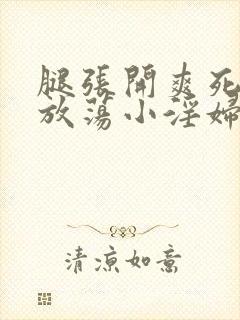 腿張開爽死
放蕩小淫婦
清涼如意